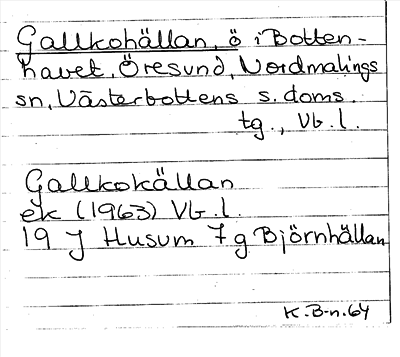 Gallkohällan, ö i Botten-
havet, Öresund, Nordmalings
sn, Västerbottens s. doms.
tg., Vb. l.
Gallkokällan
ek (1963) Vb. l.
19 J Husum 7 g Björnhällan
K.B-n.64